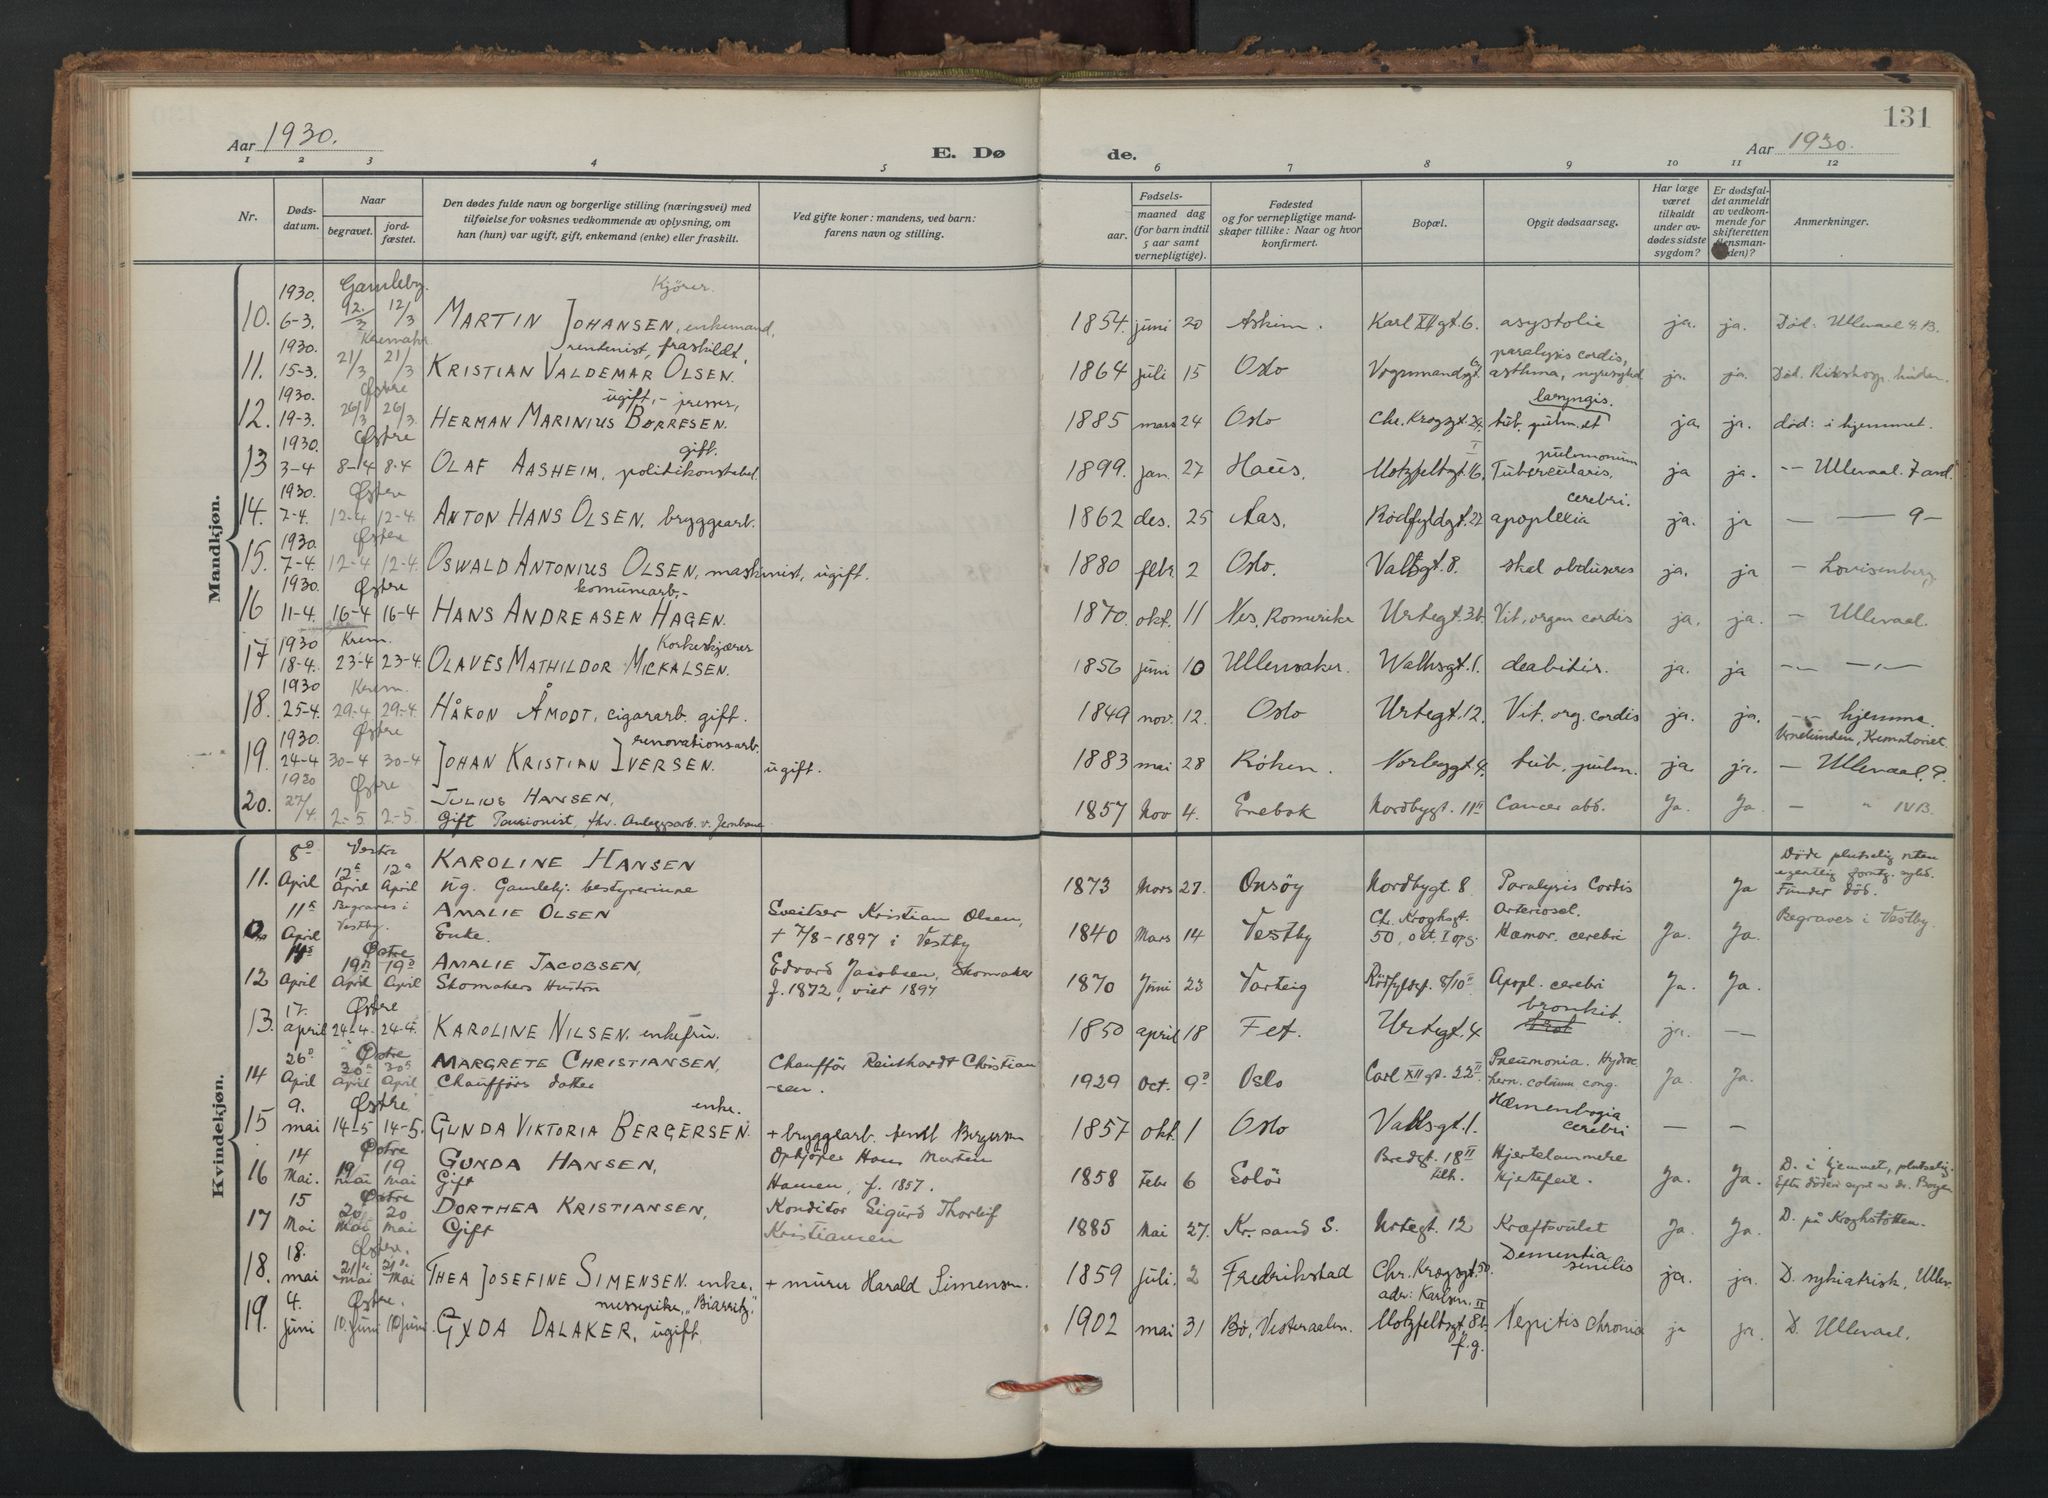 131
Aar 1930.
E. Dø
de.
Aar 1930.
1 2 3 4 5 6 7 8 9 10 11 12
Nr.
Døds-
datum.
Naar
begravet.
jord-
fæstet.
Den dødes fulde navn og borgerlige stilling (næringsvei) med
tilføielse for voksnes vedkommende av oplysning, om
han (hun) var ugift, gift, enkemand (enke) eller fraskilt.
Ved gifte koner: mandens, ved barn:
farens navn og stilling.
Fødsels-
aar.
maaned dag
(for barn indtil
5 aar samt
vernepligtige).
Fødested
og for vernepligtige mand-
skaper tillike: Naar og hvor
konfirmert.
Bopæl.
Opgit dødsaarsag.
Har læge
været
tilkaldt
under av-
dødes sidste
sygdom?
Er dødsfal-
det anmeldt
av vedkom-
mende for
skifteretten
(lensman-
den)?
Anmerkninger.
Mandkjøn.
1930. Gamleby. Kjører.
10. 6-3. 12/3 MARTIN JOHANSEN, enkemand, 1854. juni 20 Askim. Karl XII gt. 6. asystolie ja. ja. Død: Ullevaal 8. B.
1930. Kremat. rentenist, fraskildt, paralysis cordis,
11. 15-3. 21/3 21/3 KRISTIAN VALDEMAR OLSEN. 1864 juli 15 Oslo Vognmandsgt. 6 asthma, nyresykd ja. ja. Død. Rikshosp.
1930. Østre ugift, - presser, laryngis.
12. 19-3. 26/3 26/3 HERMAN MARINIUS BØRRESEN. 1885 mars 24 Oslo Chr. Krogsgt. 24. tub. pulm. et ja. ja. død: i hjemmet.
1930. Østre gift. pulmonum
13 3-4 8-4 8-4 OLAF AASHEIM, politikonstabel. 1899. jan. 27 Haus. Motzfeltsgt. 16. Tubercularis. ja ja. -- Ullevaal. 7 avd.
1930. Østre cerebri.
14. 7-4. 12-4 12-4. ANTON HANS OLSEN, bryggearb. 1862 des. 25 Aas. Rødfyldgt. 22 apoplexia ja. ja — — 9-
1930. Østre
15. 7-4. 12-4 12-4. OSWALD ANTONIUS OLSEN, maskinist, ugift. 1880 febr 2 Oslo. Vahlsgt. 8. skal obduseres ja. ja - Lovisenberg
1930. Østre komunearb.-
16 11-4. 16-4 16-4. HANS ANDREASEN HAGEN. 1870. okt. 11 Nes, Romerike Urtegt. 36. Vit. organ cordis ja. ja. - Ullevaal.
1930 Krem. Korkeskjærer
17 18-4. 23-4 23-4. OLAVES MATHILDOR MICKALSEN. 1856 juni 10 Ullensaker. Wahlsgt. 1. deabitis. ja. ja -- --
1930 Krem.
18. 25-4. 29-4 29-4. HÅKON ÅMODT, cigararb. gift. 1849 nov. 12. Oslo Urtegt. 12. Vit. org. cordis ja. ja. -- hjemme.
1930. Østre renovationsarb. Urnelunden, Krematoriet.
19. 24-4 30-4 30-4 JOHAN KRISTIAN IVERSEN. ugift. 1883 mai 28 Røken. Norbygt. 4. tub. pulm. ja. ja. - Ullevaal. 9.
1930 Østre JULIUS HANSEN,
20. 27/4. 2-5. 2-5. Gift Pensionist, fhv. Anleggsarb. v. Jernbane 1857 Nov 4. Enebak Nordbygt. 11 II Cancer abd. Ja. Ja. - " IV B.
Kvindekjøn.
8de Vestre KAROLINE HANSEN Døde plutselig uten
11. April 12te April 12te April ug. Gamlehj. bestyrerinne 1873 Mars 27. Onsöy Nordbygt. 8 Paralysis Cordis Ja egentlig forutg. sykd. Funden död.
11te Begraves i AMALIE OLSEN Sveitser Kristian Olsen, Chr. Kroghsgt. Arteriosel. Begraves i Vestby
April Vestby. Enke. + 7/8-1897 i Vestby 1840 Mars 14 Vestby 50, I opg. Hæmor. cerebri Ja. Ja.
14de Østre AMALIE JACOBSEN, Edvard Jacobsen, Skomaker
12 April 19de April 19de April Skomakers Hustru f. 1872, viet 1897 1870 Juni 23 Varteig Rødfyldgt. 8/10 II Apopl. cerebri Ja. Ja.
17. Østre bronkit.
13. april 24-4. 24-4. KAROLINE NILSEN. enkefru. 1850 april 18 Fet. Urtegt. 4 ja. —
26de Østre MARGRETE CHRISTIANSEN, Chauffør Reinhardt Christian Pneumonia. Hydroc
14 April 30te April 30te April Chaufførs datter -sen. 1929 Oct. 9de Oslo Carl XII gt. 22 II. hern. column cong. Ja. Ja.
9. Østre enke. Hæmenbogia
15 mai 14-5 14-5. GUNDA VIKTORIA BERGERSEN. + bryggearb. Bergersen 1857 okt. 1 Oslo Vahlsgt. 1. cerebri — —
14 Østre GUNDA HANSEN, Opkjøper Hans Morten Bredgt. 18 II Hjertelammelse D. i hjemmet, plutselig.
16 Mai. 19 Mai 19 Mai Gift Hansen, f. 1857. 1858 Febr 6 Solör tilh. Hjertefeil. Ja. Ja. Efter döden synt av dr. Borgen
15 Østre DORTHEA KRISTIANSEN, Konditor Sigurd Thorleif
17 Mai 20 Mai 20 Mai Gift Kristiansen 1885 Mai 27. Kr. sand S. Urtegt. 12 Kræftsvulst Ja Ja. D. på Kroghstötten.
18. Østre. Dementia
18. mai 21de Mai 21de Mai THEA JOSEFINE SIMENSEN. enke. + murer Harald Simensen. 1859 juli 2 Fredrikstad Chr. Krogsgt. 50. sinilis ja. ja. D. sykiatrisk, Ullev.
4. Østre. messepike, „Biarritz" adr: Karlsen. II
19. juni 10. juni 10 juni. GYDA DALAKER, ugift. 1902 mai 31 Bø, Vesteraalen. Motzfeltsgt. 8b. f. g. Nepitis chronia ja ja. D. Ullevaal.